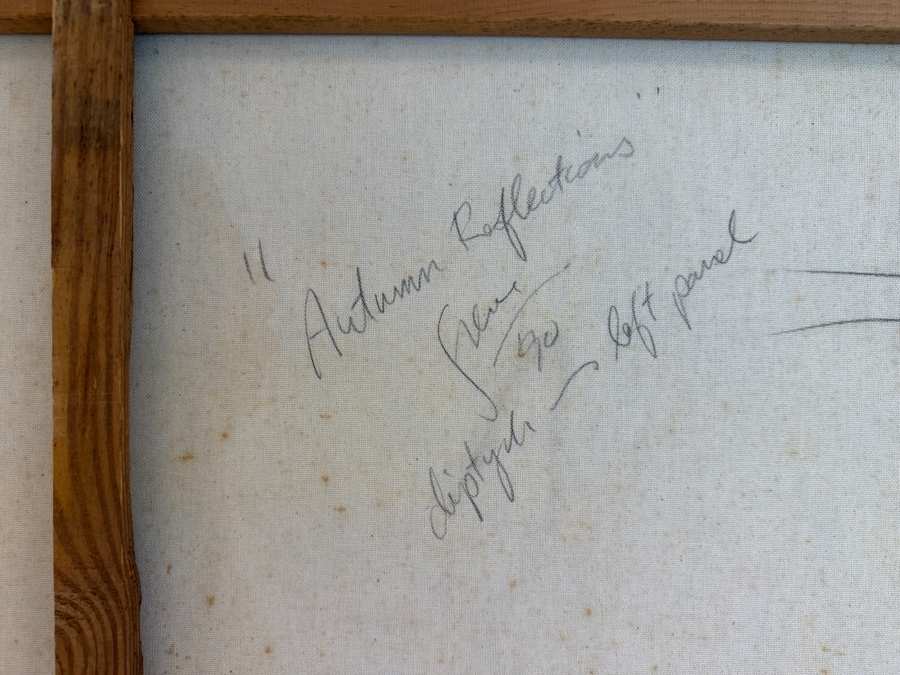 "Autumn Reflections"
'90
diptych – left panel